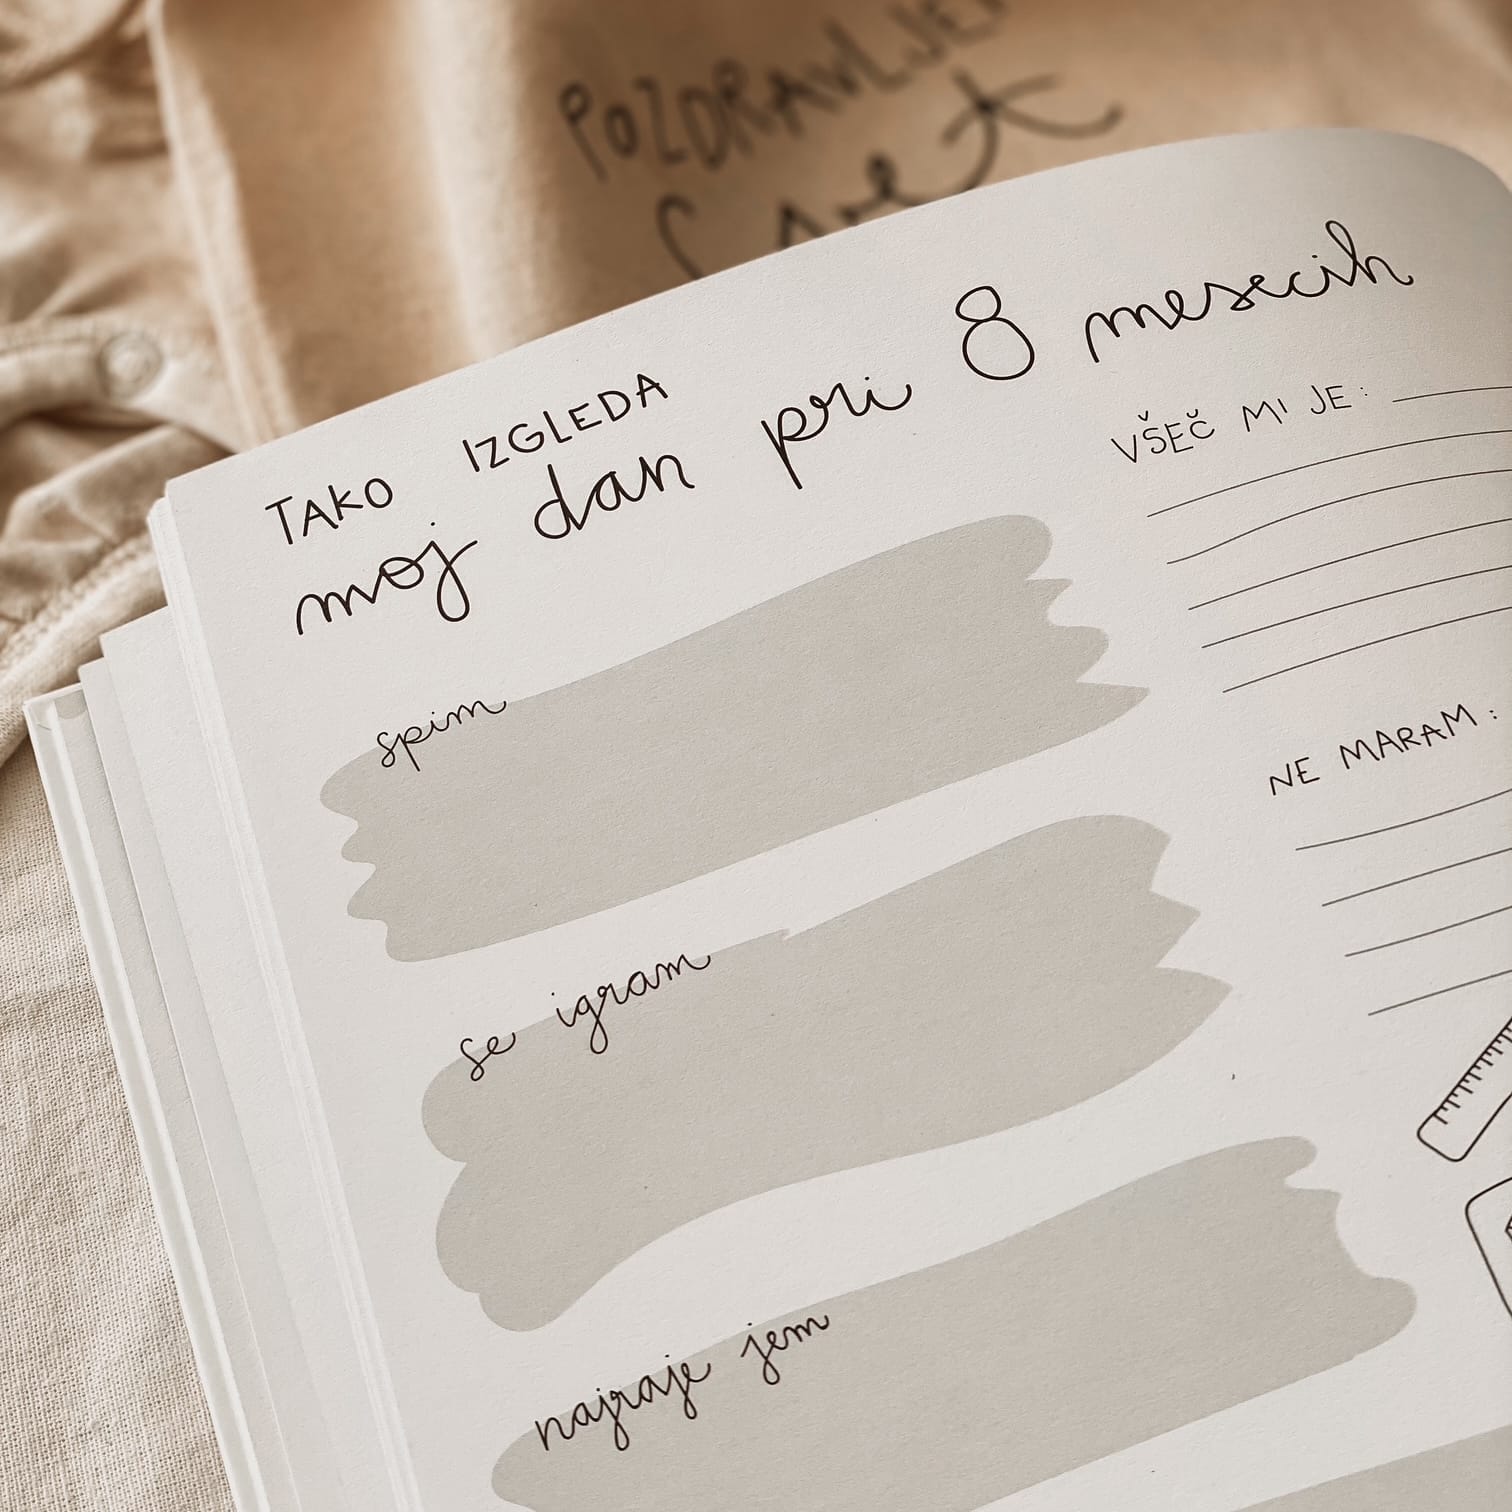 POZDRAVLJEN
Svet
TAKO IZGLEDA
moj dan pri 8 mesecih
VŠEČ MI JE:
spim
NE MARAM:
se igram
najraje jem